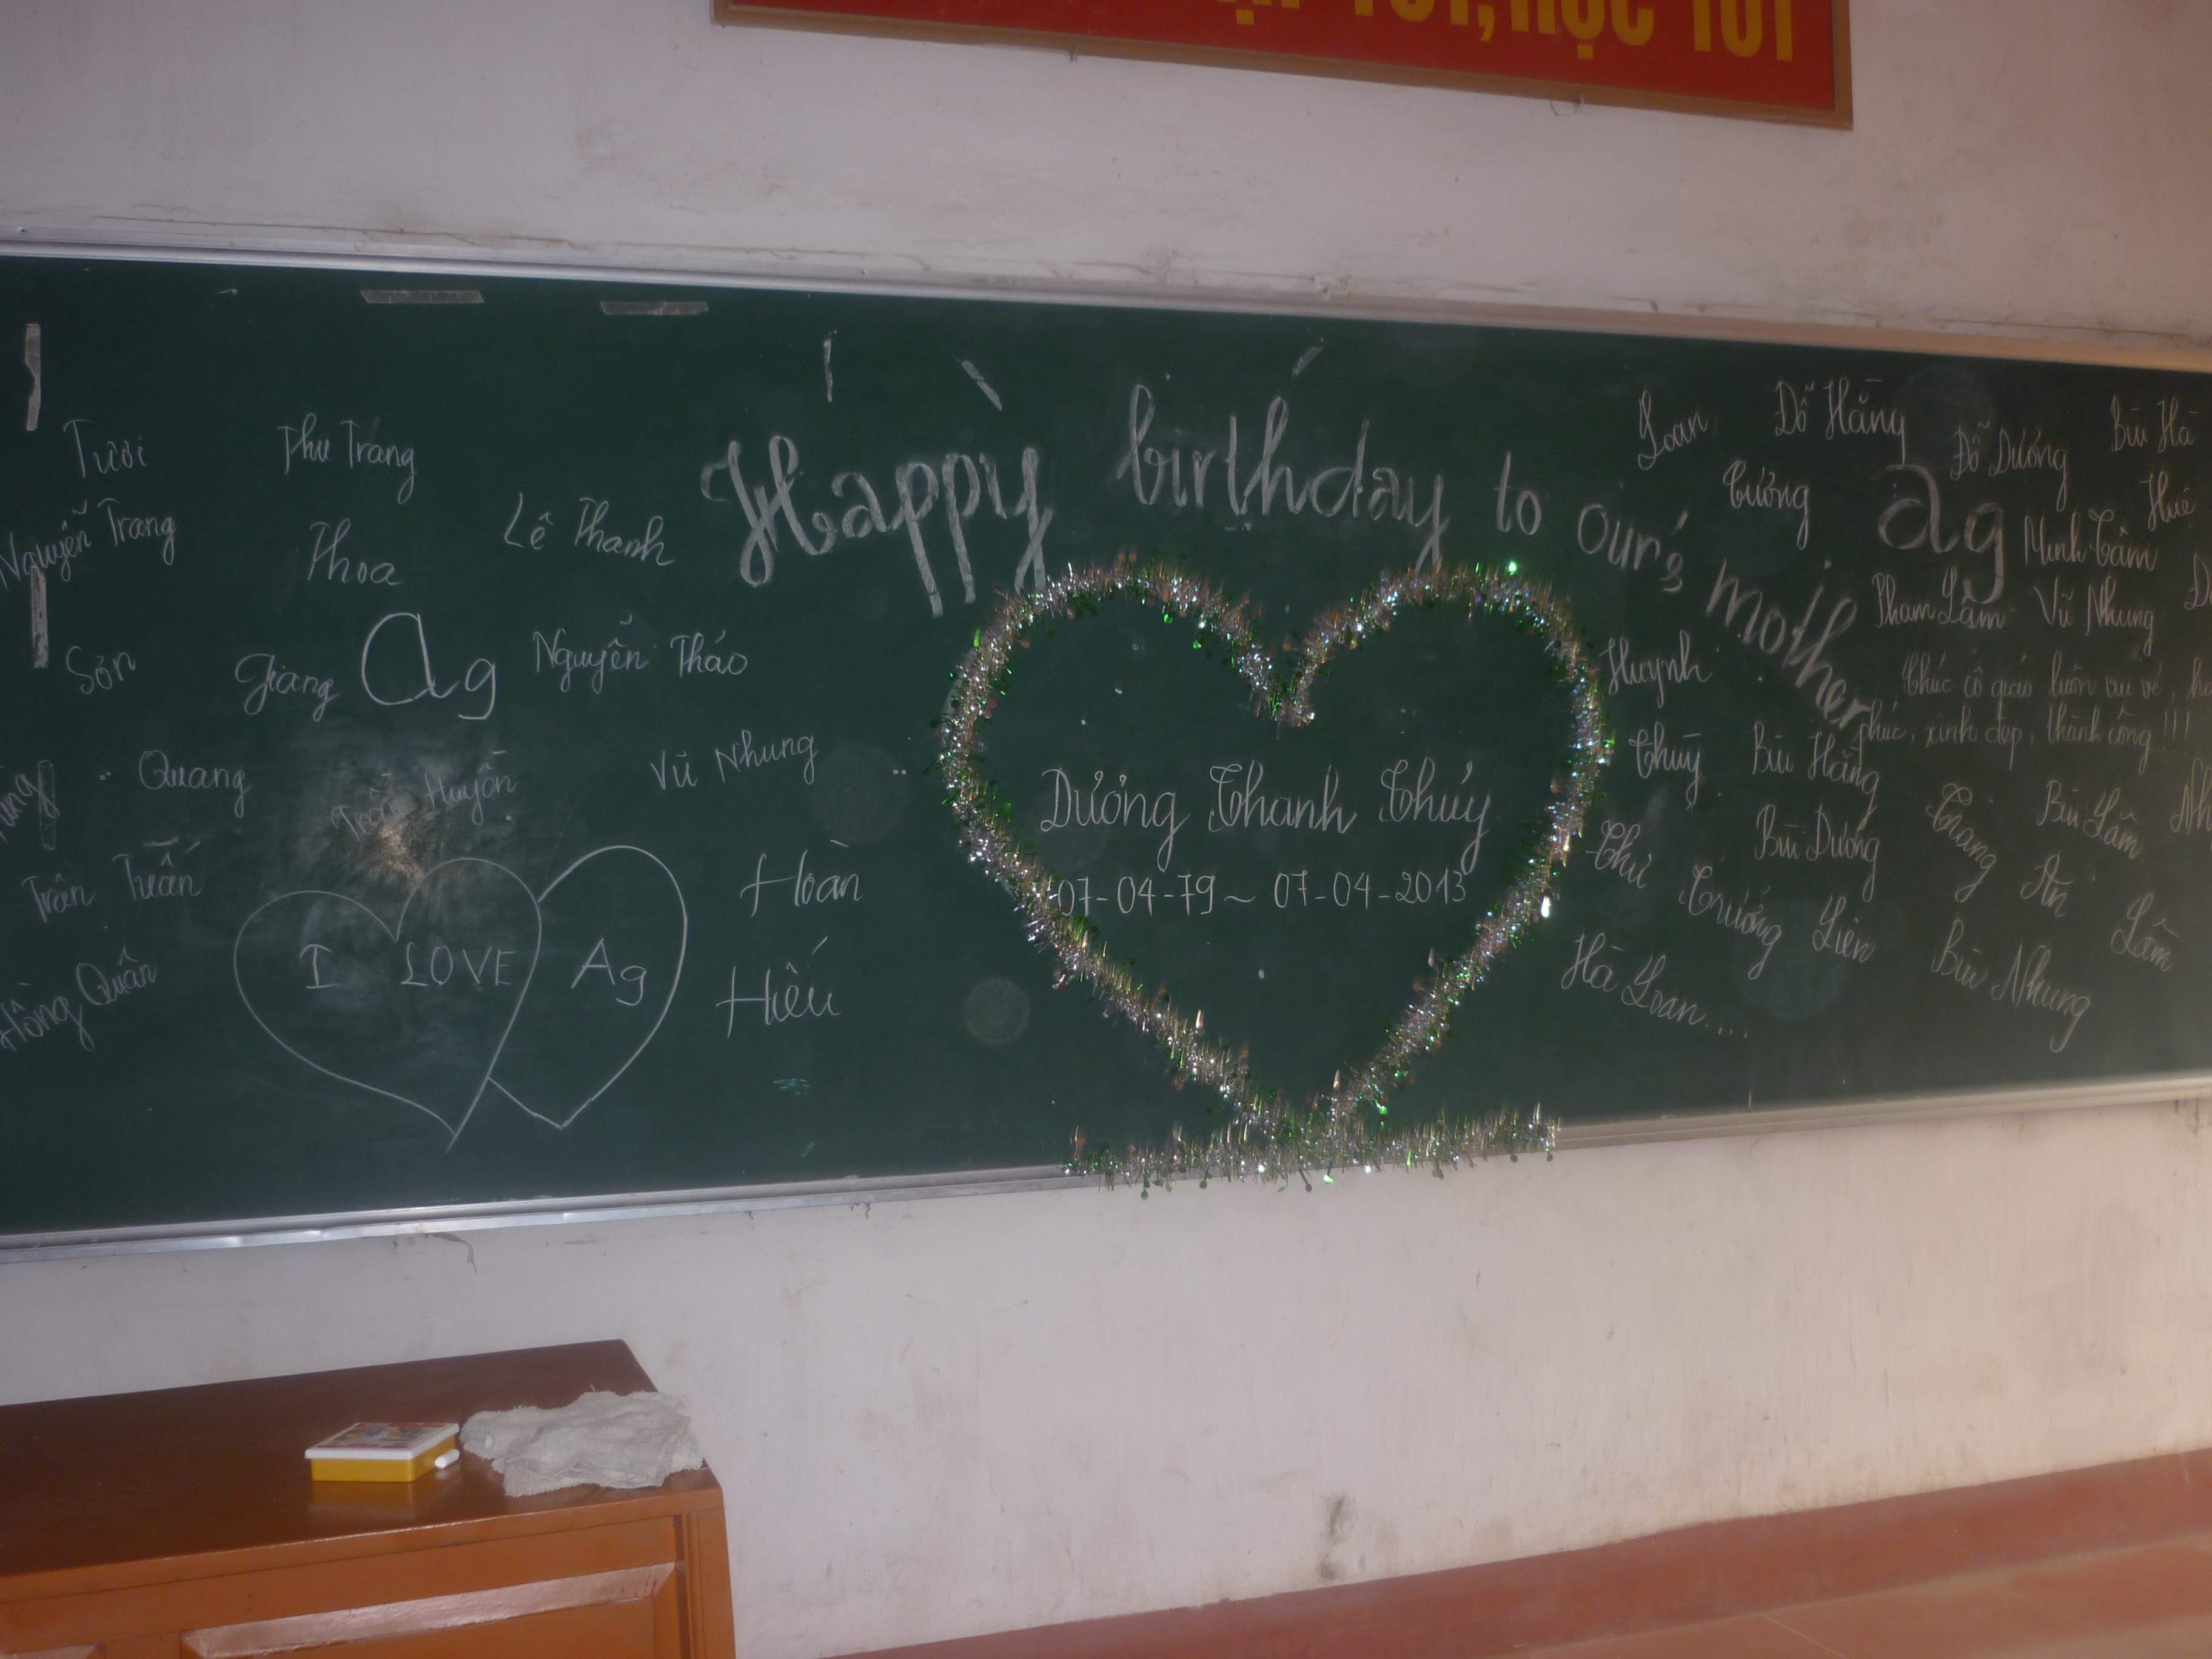 TỐT, HỌC TỐT
Happy birthday to our's mother
Tươi
Thu Trang
Nguyễn Trang
Thoa
Lê Thanh
Sơn
Giang
Ag
Nguyễn Thảo
Quang
Trần Huyền
Vũ Nhung
Trần Tuấn
Hoàn
Hồng Quân
I LOVE Ag
Hiếu
Dương Thanh Thủy
07-04-79 ~ 07-04-2013
Loan
Đỗ Hằng
Đỗ Dương
Bùi Hà
Cương
Ag
Minh Tâm
Huê
Phạm Lâm
Vũ Nhung
Huynh
Chúc cô giáo luôn vui vẻ,
phúc, xinh đẹp, thành công!!!
Thuỳ
Bùi Hằng
Bùi Lâm
Thư
Bùi Dương
Trang
An
Trường
Liên
Lâm
Hà Loan....
Bùi Nhung